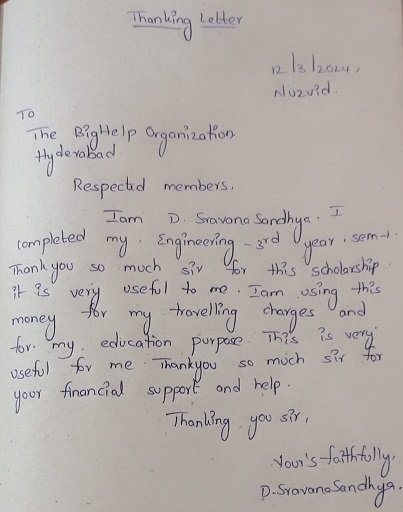 Thanking Letter
12/3/2024,
Nuzvid.
To
The BigHelp Organization
Hyderabad
Respected members,
Iam D. Sravana Sandhya. I
completed my. Engineering - 3rd year, sem-1.
Thank you so much sir for this scholarship.
it is very useful to me. Iam using this
money for my travelling charges and
for. my. education purpose. This is very
useful for me Thankyou so much sir for
your financial support and help.
Thanking you sir,
Your's faithfully,
D. Sravana Sandhya.